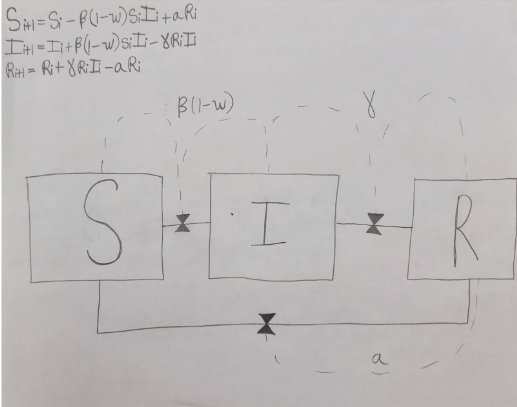 Si+1=Si-β(1-w)SiIi+aRi
Ii+1=Ii+β(1-w)SiIi-γRiIi
Ri+1=Ri+γRiIi-aRi
β(1-w)
γ
S
I
R
a